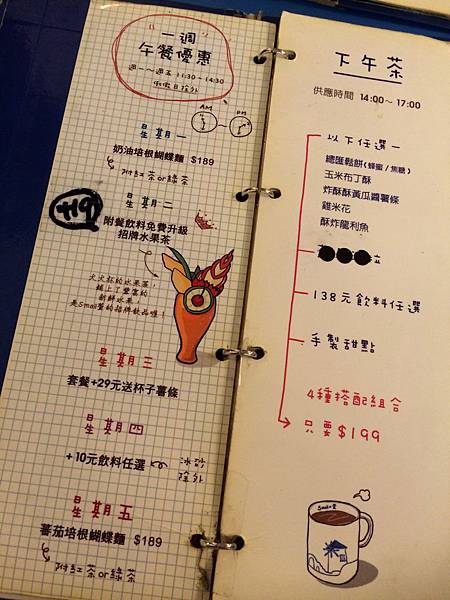 一週
午餐優惠
週一～週五 11:30-14:30
例假日除外
AM
PM
星期一
奶油培根蝴蝶麵 $189
附紅茶or綠茶
+19
星期二
附餐飲料免費升級
招牌水果茶
大大杯的水果茶,
鋪上了豐富的
新鮮水果,
是Small蟹的招牌飲品喔!
星期三
套餐+29元送杯子薯條
星期四
+10元飲料任選
冰砂
除外
星期五
蕃茄培根蝴蝶麵 $189
附紅茶or綠茶
下午茶
供應時間 14:00~17:00
以下任選一
總匯鬆餅(蜂蜜/焦糖)
玉米布丁酥
炸酥酥黃瓜醬薯條
雞米花
酥炸龍利魚
138元飲料任選
手製甜點
4種搭配組合
只要$199